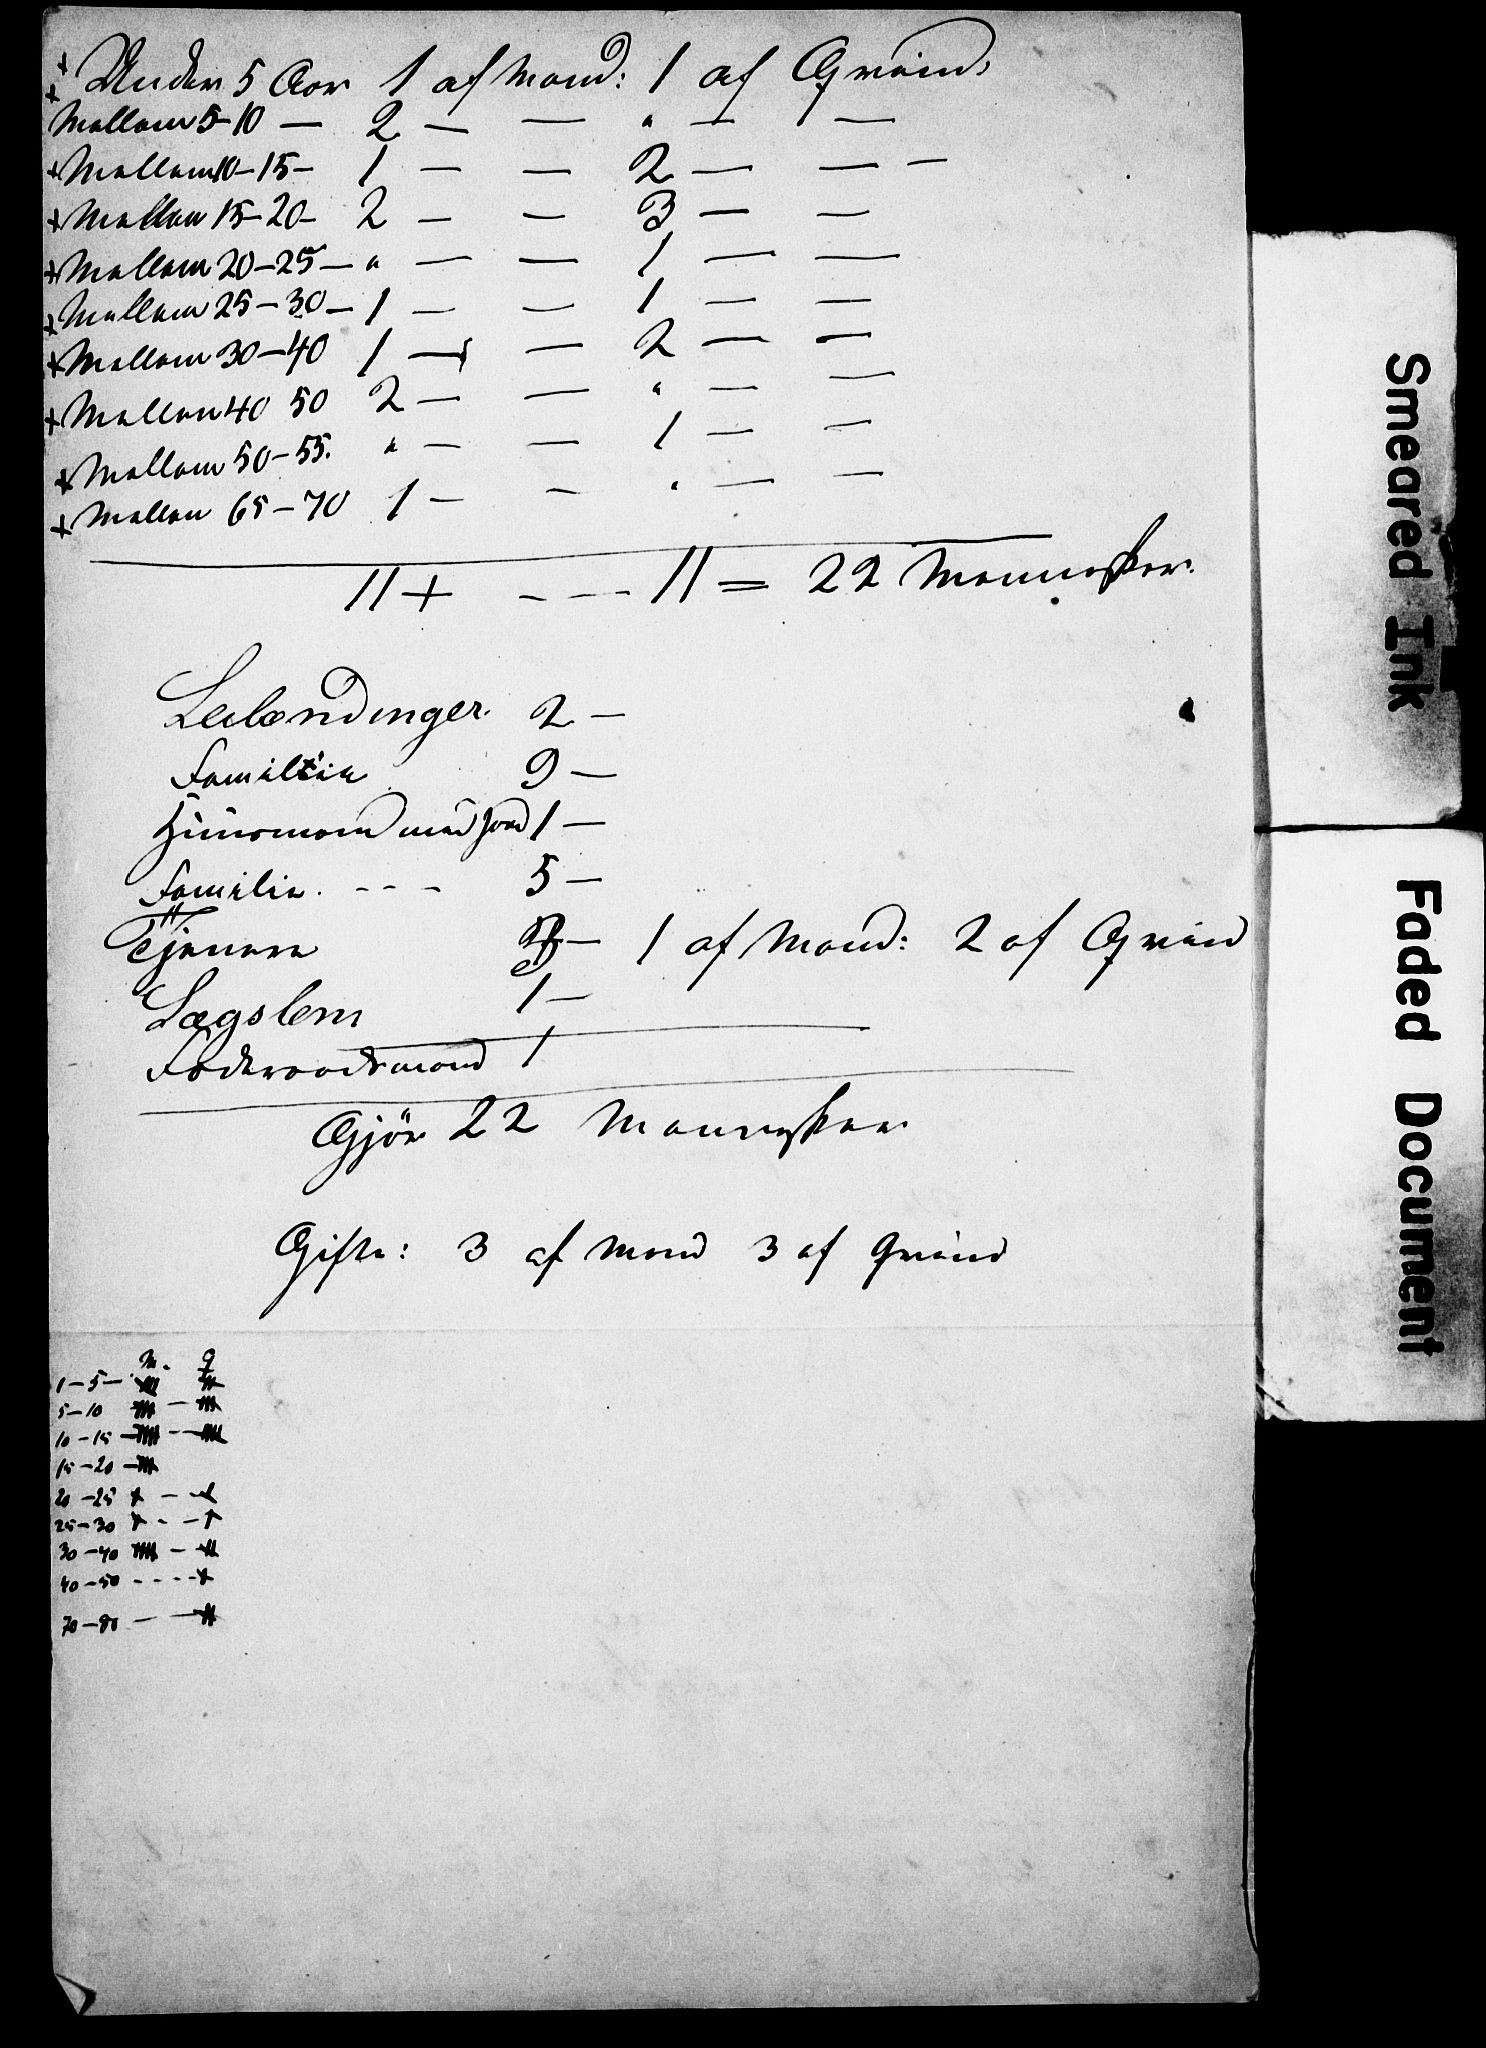 + Under 5 Aar 1 af Mand: 1 af Qvind:
+ Mellem 5-10 — 2 — — " — —
+ Mellem 10-15- 1 — — 2 — — —
+ Mellem 15-20- 2 — — 3 — —
+ Mellem 20-25 — " — — 1 — —
+ Mellem 25-30 — 1 — — 1 — —
+ Mellem 30-40 1 — — 2 — —
+ Mellem 40 50 2 — — " — —
+ Mellem 50-55. " — — 1 — —
+ Mellem 65-70 1 — — " — —
11 + - - - 11 = 22 Mennesker.
Leilændinger. 2 —
Familie 9 —
Huusmand med Jord 1 —
Familie. - - - 5 —
Tjenere 3 — 1 af Mand: 2 af Qvind
Lægslem 1 —
Föderaadsmand 1
Gjör 22 Mennesker
Gifte: 3 af Mand 3 af Qvind
M. Q
1-5-
5-10 —
10-15 —
15-20 —
20-25 + —
25-30 + - - +
30-40 —
40-50 - - - - +
70-80 — —
Smeared Ink
Faded Document